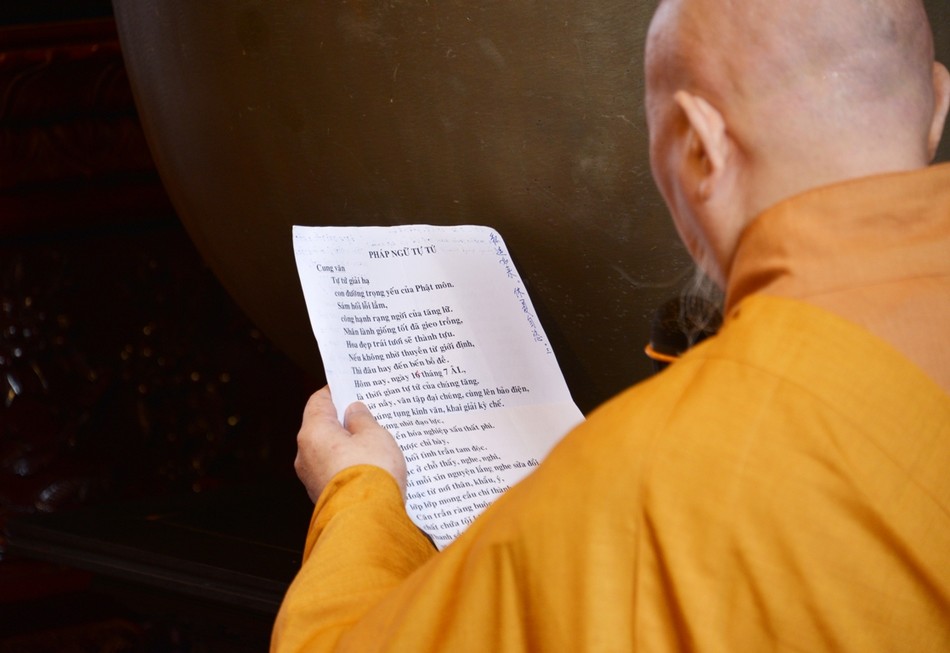 PHÁP NGỮ TỰ TỨ
Cung văn
Tự tứ giải hạ
con đường trọng yếu của Phật môn.
Sám hối lỗi lầm,
công hạnh rạng ngời của tăng lữ.
Nhân lành giống tốt đã gieo trồng,
Hoa đẹp trái tươi sẽ thành tựu.
Nếu không nhờ thuyền từ giới định,
Thì đâu hay đến bến bồ đề.
Hôm nay, ngày 16 tháng 7 ÂL,
là thời gian tự tứ của chúng tăng.
giờ nầy, vân tập đại chúng, cùng lên bảo điện,
cùng tụng kinh văn, khai giải kỳ chế.
nhờ đạo lực,
hóa nghiệp xấu thất phi.
được chỉ bày,
hối tình trần tam độc.
ở chỗ thấy, nghe, nghi,
mỗi xin nguyện lắng nghe sửa đổi
Hoặc từ nơi thân, khẩu, ý,
lớp lớp mong cầu chỉ
Căn trần ràng
chất chứa tội